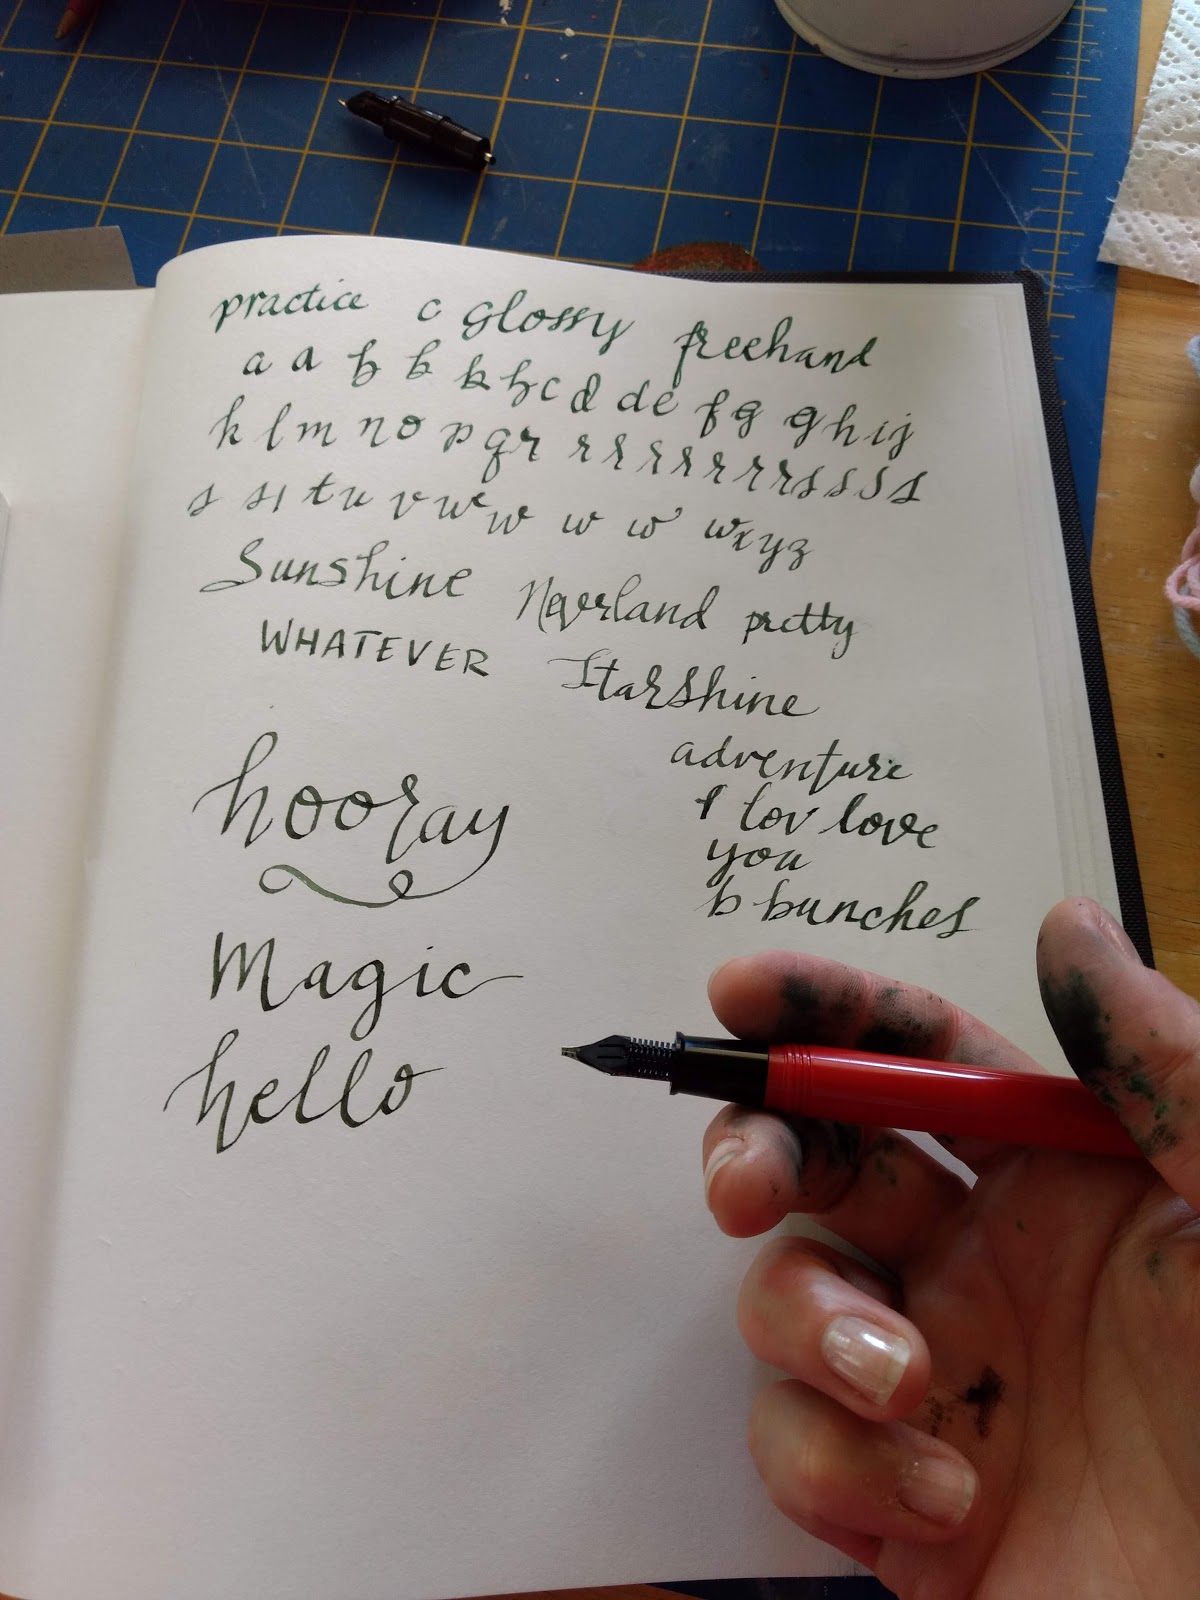 practice c glossy freehand
a a b b k h c d d e f g g h i j
k l m n o p q r r r r r r r r r s s s s
s s t u v w w w w w x y z
Sunshine Neverland pretty
WHATEVER Starshine
hooray
adventure
I lov love
you
b bunches
Magic
hello